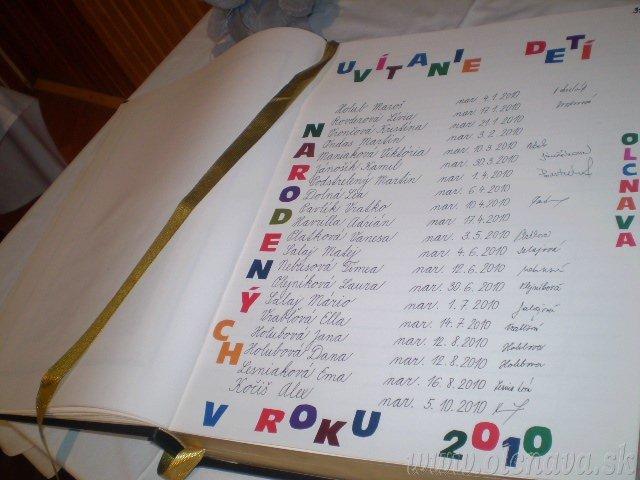 UVÍTANIE DETÍ
NARODENÝCH
OLCNAVA
Holub Maroš nar. 4.1.2010
Kovderová Lívia nar. 17.1.2010
Vrončová Kristína nar. 21.1.2010
Ondáš Martin nar. 3.2.2010
Maniaková Viktória nar. 10.3.2010
Janošík Kamil nar. 30.3.2010
Podstrelený Martin nar. 1.4.2010
Dolná Lea nar. 6.4.2010
Pavlík Vratko nar. 10.4.2010
Havrilla Adrián nar. 17.4.2010
Platková Vanesa nar. 3.5.2010
Salaj Matej nar. 4.6.2010 Salajová
Nebusová Timea nar. 12.6.2010
Olejníková Laura nar. 30.6.2010 Olejníková
Salaj Mário nar. 1.7.2010 Salajová
Vrabľová Ella nar. 14.7.2010
Holubová Jana nar. 12.8.2010 Holubova
Holubová Dana nar. 12.8.2010 Holubova
Lesniaková Ema nar. 16.8.2010
Kočiš Alex nar. 5.10.2010
V ROKU 2010
www.olcnava.sk